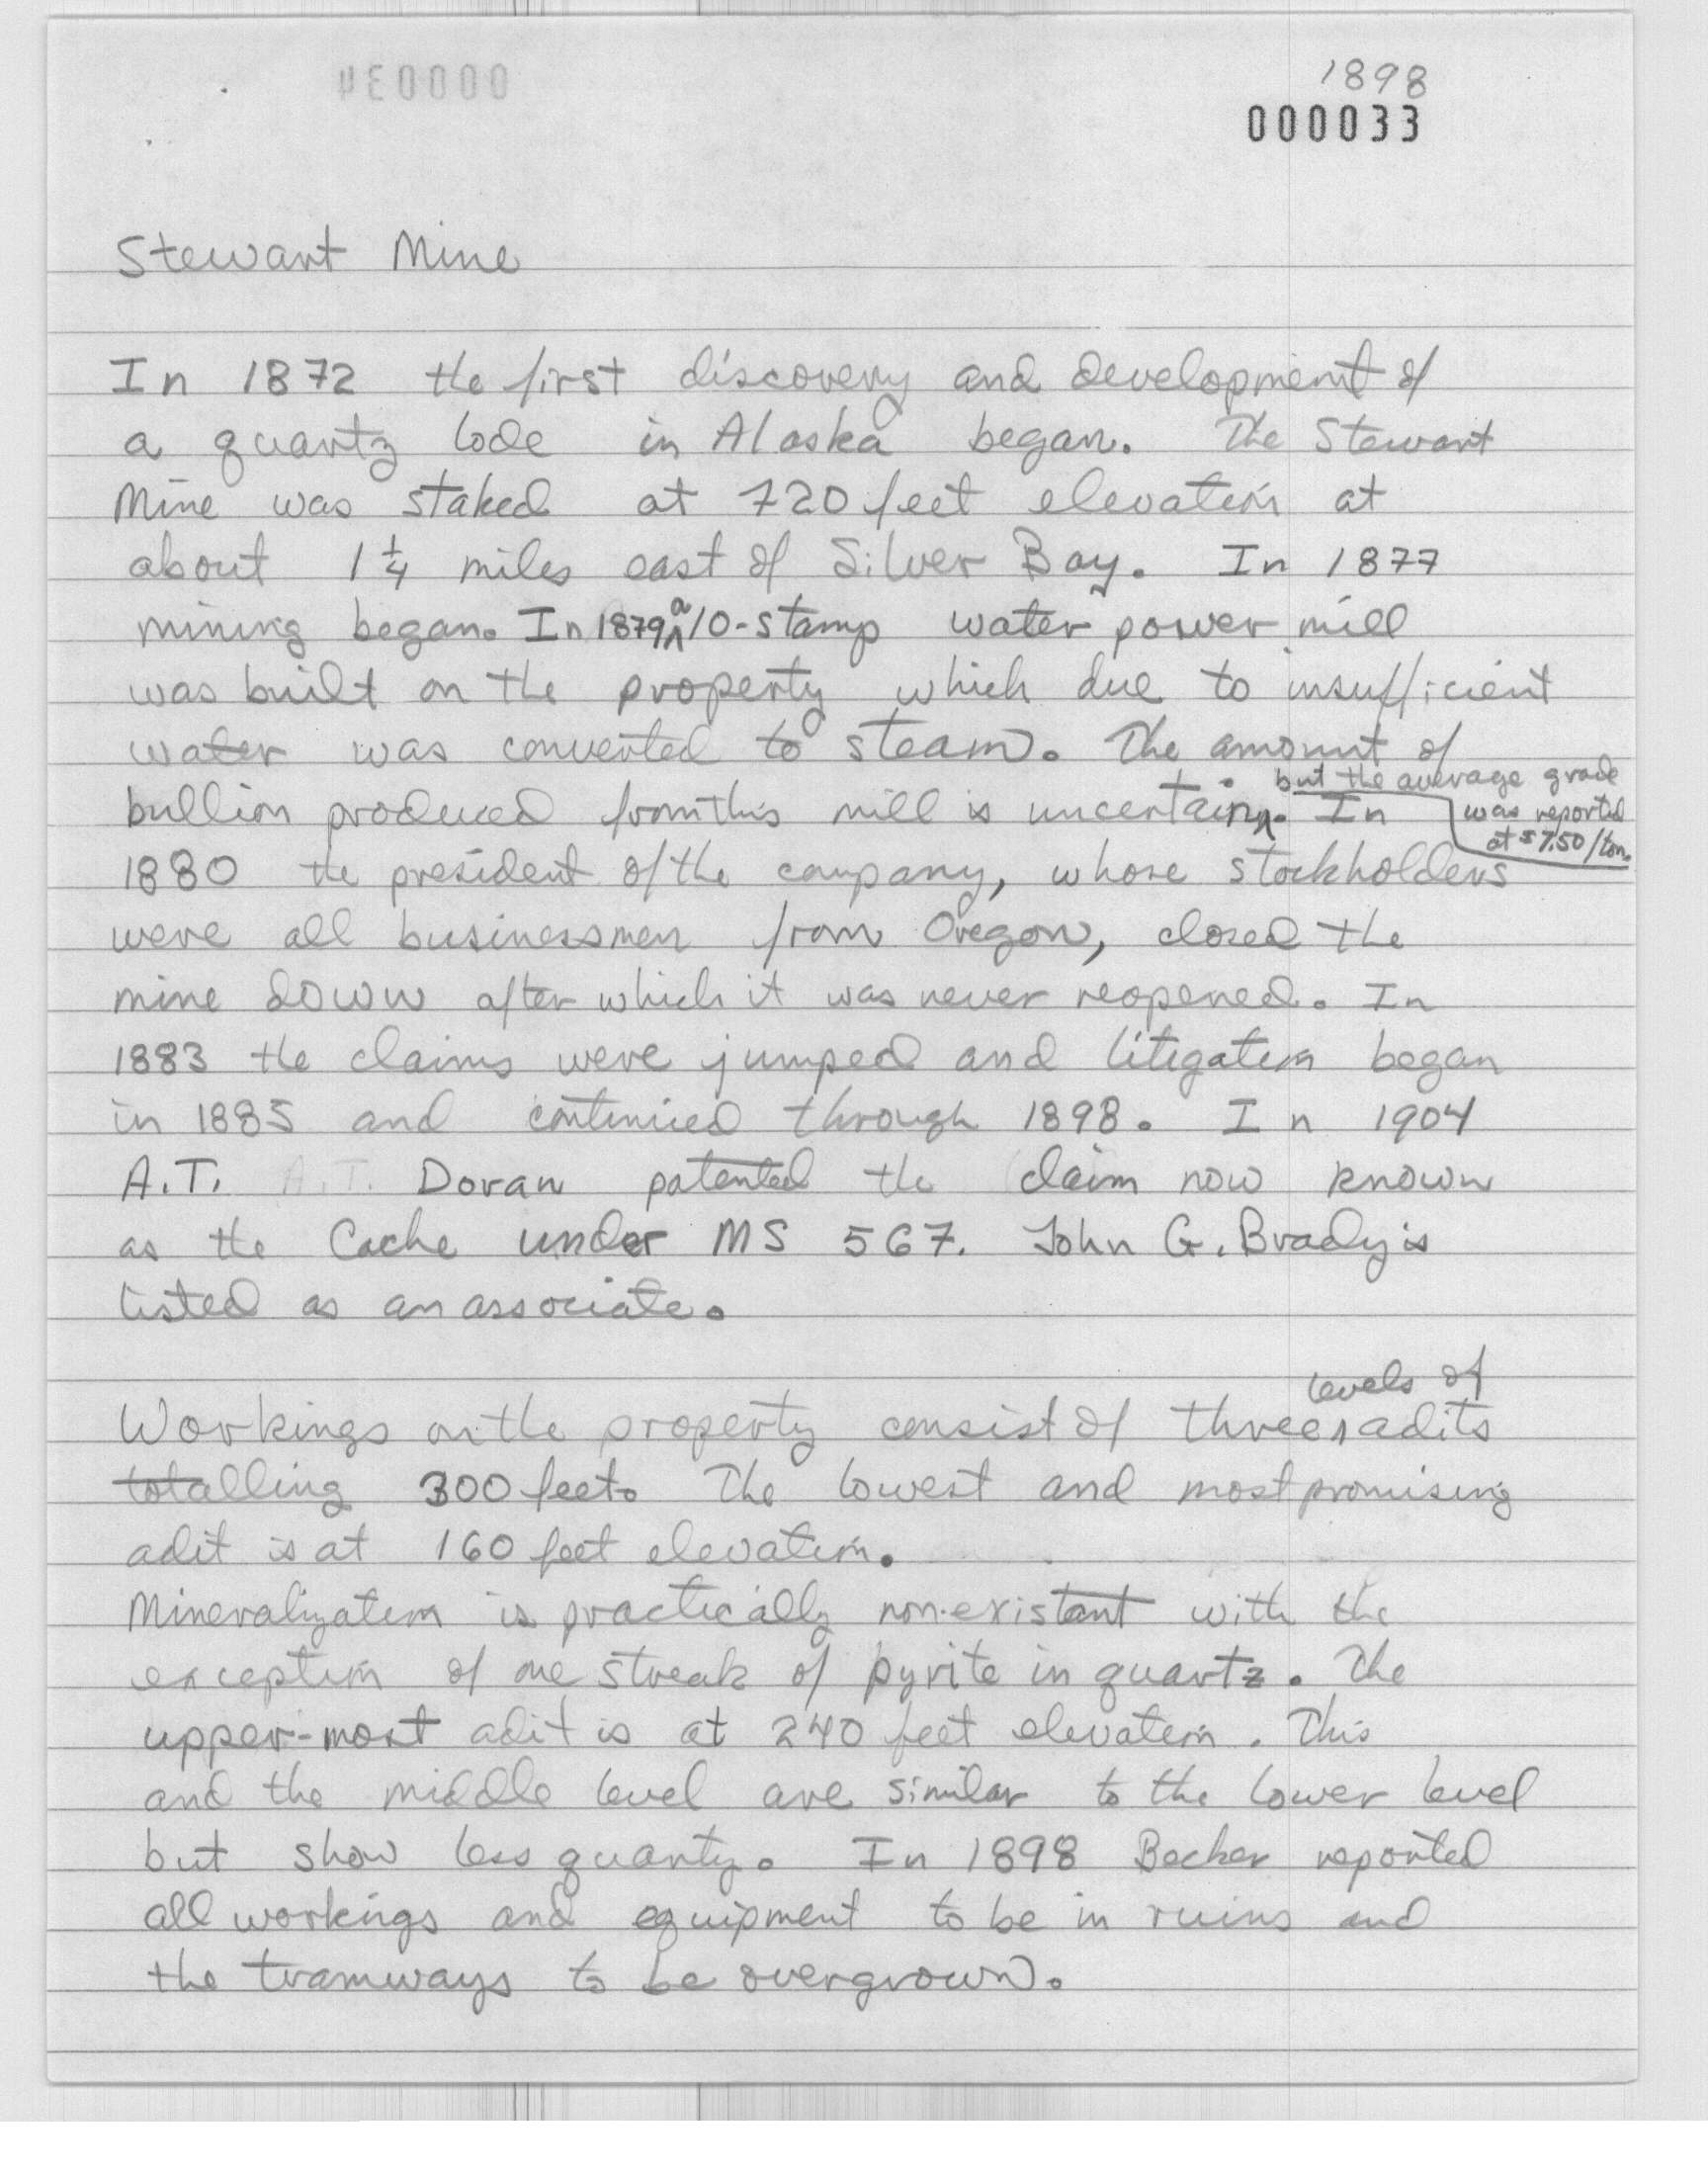 1898
000033
Stewart Mine
In 1872 the first discovery and development of
a quartz lode in Alaska began. The Stewart
Mine was staked at 720 feet elevation at
about 1 1/4 miles east of Silver Bay. In 1877
mining began. In 1879 a 10-stamp water power mill
was built on the property which due to insufficient
water was converted to steam. The amount of
bullion produced from this mill is uncertain but the average grade was reported at $7.50/ton. In
1880 the president of the company, whose stockholders
were all businessmen from Oregon, closed the
mine down after which it was never reopened. In
1883 the claims were jumped and litigation began
in 1885 and continued through 1898. In 1904
A.T. Doran patented the claim now known
as the Cache under MS 567. John G. Brady is
listed as an associate.
Workings on the property consist of three levels of adits
totalling 300 feet. The lowest and most promising
adit is at 160 feet elevation.
Mineralization is practically non-existant with the
exception of one streak of pyrite in quartz. The
upper-most adit is at 240 feet elevation. This
and the middle level are similar to the lower level
but show less quartz. In 1898 Becker reported
all workings and equipment to be in ruins and
the tramways to be overgrown.